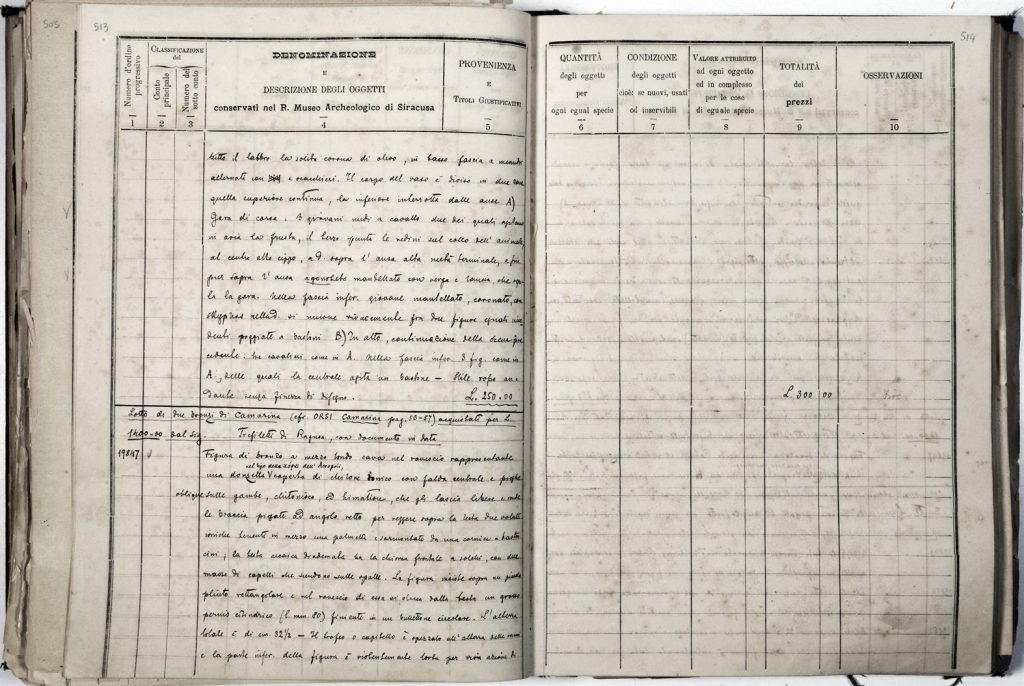 505
513
Numero d'ordine progressivo
1
CLASSIFICAZIONE del
Conto principale
2
Numero del sotto conto
3
DENOMINAZIONE
E
DESCRIZIONE DEGLI OGGETTI
conservati nel R. Museo Archeologico di Siracusa
4
PROVENIENZA
E
TITOLI GIUSTIFICATIVI
5
tutto il labbro la solita corona di olivo, in basso fascia a meandri
alternati con e scacchieri. Il corpo del vaso è diviso in due zone
quella superiore continua, la inferiore interrotta dalle anse A)
Gara di corsa. 3 giovani nudi a cavallo due dei quali agitano
in aria la frusta, il terzo punta le redini sul collo dell'animale,
al centro alto cippo, a d. sopra l'ansa alta meta terminale, e
pur sopra l'ansa agonoteta mantellato con verga e
la la gara. Nella fascia infer. giovane mantellato, coronato, con
skyphos nella d. si muove vivacemente fra due figure
denti poggiate a bastoni. B) In alto, continuazione della scena pre
cedente: tre cavalieri come in A. Nella fascia infer. 3 fig. come in
A; delle quali la centrale agita un bastone — Stile rosso an
dante senza finezza di disegno. L. 250.00
Lotto di due bronzi di Camarina (cfr. ORSI Camarina pag. 50-57) acquistati per L.
1400.00 dal sig. Trefiletti di Ragusa, con documento in data
19847
Figura di bronzo a mezzo tondo cava nel rovescio rappresentante
nel tipo delle κόραι dell'Acropoli,
una donzella coperta di chitone ionico con falda centrale e pieghe
oblique sulle gambe, chitonisco, ed himation, che gli lascia libere e nude
le braccia piegate ad angolo retto per reggere sopra la testa due volute
ioniche tenenti in mezzo una palmetta e sormontate da una cornice a baston
cini; la testa arcaica diademata ha la chioma frontale a solchi, con due
masse di capelli che scendono sulle spalle. La figura insiste sopra un piccolo
plinto rettangolare e nel rovescio di essa si stacca dalla testa un grosso
pernio cilindrico (l. mm. 80) finiente in un bottone circolare. L'altezza
totale è di cm. 32½ — Il trofeo o capitello è spezzato all'altezza delle mani
e la parte infer. della figura è violentemente torta per azione di
514
QUANTITÀ
degli oggetti
per
ogni egual specie
6
CONDIZIONE
degli oggetti
cioè: se nuovi, usati
od inservibili
7
VALORE ATTRIBUITO
ad ogni oggetto
ed in complesso
per le cose
di eguale specie
8
TOTALITÀ
dei
prezzi
9
OSSERVAZIONI
10
L. 300 00